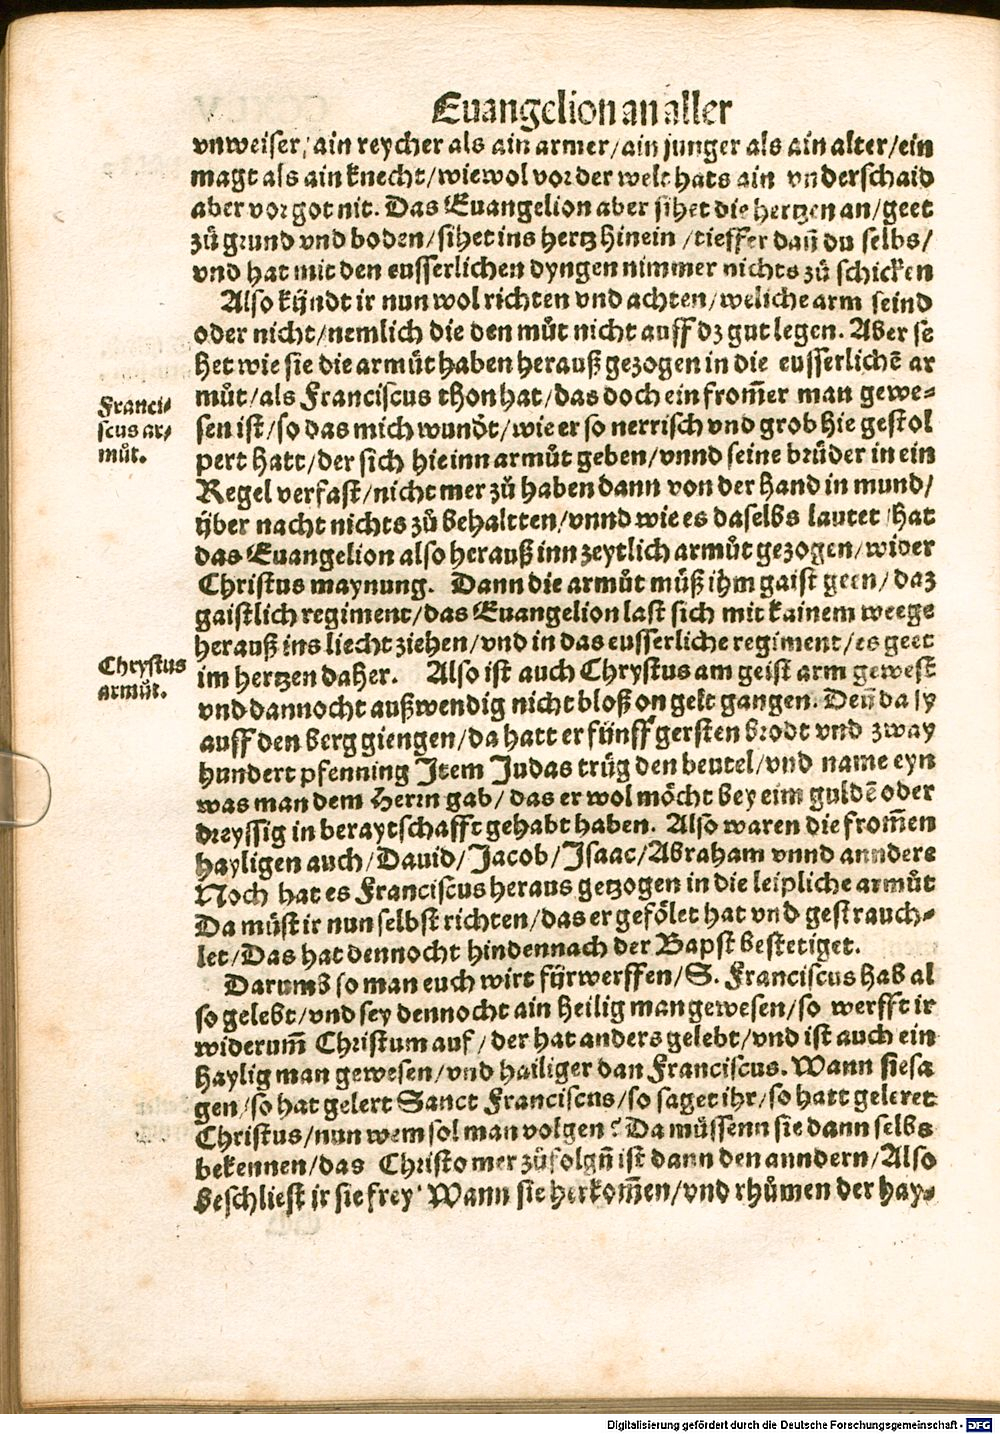 Euangelion an aller
vnweiser/ ain reycher als ain armer/ ain junger als ain alter/ ein
magt als ain knecht/ wiewol vor der welt hats ain vnderschaid
aber vor got nit. Das Euangelion aber sihet die hertzen an/ geet
zů grund vnd boden/ sihet ins hertz hinein /tieffer dañ du selbs/
vnd hat mit den eusserlichen dyngen nimmer nichts zů schicken
Also kÿndt ir nun wol richten vnd achten/ weliche arm seind
oder nicht/ nemlich die den můt nicht auff dz gut legen. Aber se
het wie sie die armůt haben herauß gezogen in die eusserlichē ar
můt/ als Franciscus thon hat/ das doch ein from̃er man gewe-
sen ist/ so das mich wundt/ wie er so nerrisch vnd grob hie gestol
pert hatt/ der sich hie inn armůt geben/ vnnd seine brüder in ein
Regel verfast/ nicht mer zů haben dann von der hand in mund/
ÿber nacht nichts zů behaltten/ vnnd wie es daselbs lautet /hat
das Euangelion also herauß inn zeytlich armůt gezogen/ wider
Christus maynung. Dann die armůt můß ihm gaist geen/ daz
gaistlich regiment/ das Euangelion last sich mit kainem weege
herauß ins liecht ziehen/ vnd in das eusserliche regiment/ es geet
im hertzen daher. Also ist auch Chrystus am geist arm gewest
vnd dannocht außwendig nicht bloß on gelt gangen. Den̄ da sy
auff den berg giengen/ da hatt er fünff gersten brodt vnd zway
hundert pfenning Item Judas trůg den beutel/ vnd name eyn
was man dem Herrn gab/ das er wol möcht bey eim guldē oder
dreyssig in beraytschafft gehabt haben. Also waren die from̃en
hayligen auch/ Dauid/ Jacob/ Isaac/ Abraham vnnd anndere
Noch hat es Franciscus heraus getzogen in die leipliche armůt
Da můst ir nun selbst richten/ das er gefölet hat vnd gestrauch-
let/ Das hat dennocht hindennach der Bapst bestetiget.
Darumb so man euch wirt fÿrwerffen/ S. Franciscus hab al
so gelebt/ vnd sey dennocht ain heilig man gewesen/ so werfft ir
widerum̃ Christum auf/ der hat anders gelebt/ vnd ist auch ein
haylig man gewesen/ vnd hailiger dan Franciscus. Wann sie sa
gen/ so hat gelert Sanct Franciscus/ so saget ihr/ so hatt geleret
Christus/ nun wem sol man volgen? Da můssenn sie dann selbs
bekennen/ das Christo mer zů folgn̄ ist dann den anndern/ Also
beschliest ir sie frey. Wann sie herkom̃en/ vnd rhůmen der hay-
Franci-
scus ar-
můt.
Chrystus
armůt.
Digitalisierung gefördert durch die Deutsche Forschungsgemeinschaft - DFG